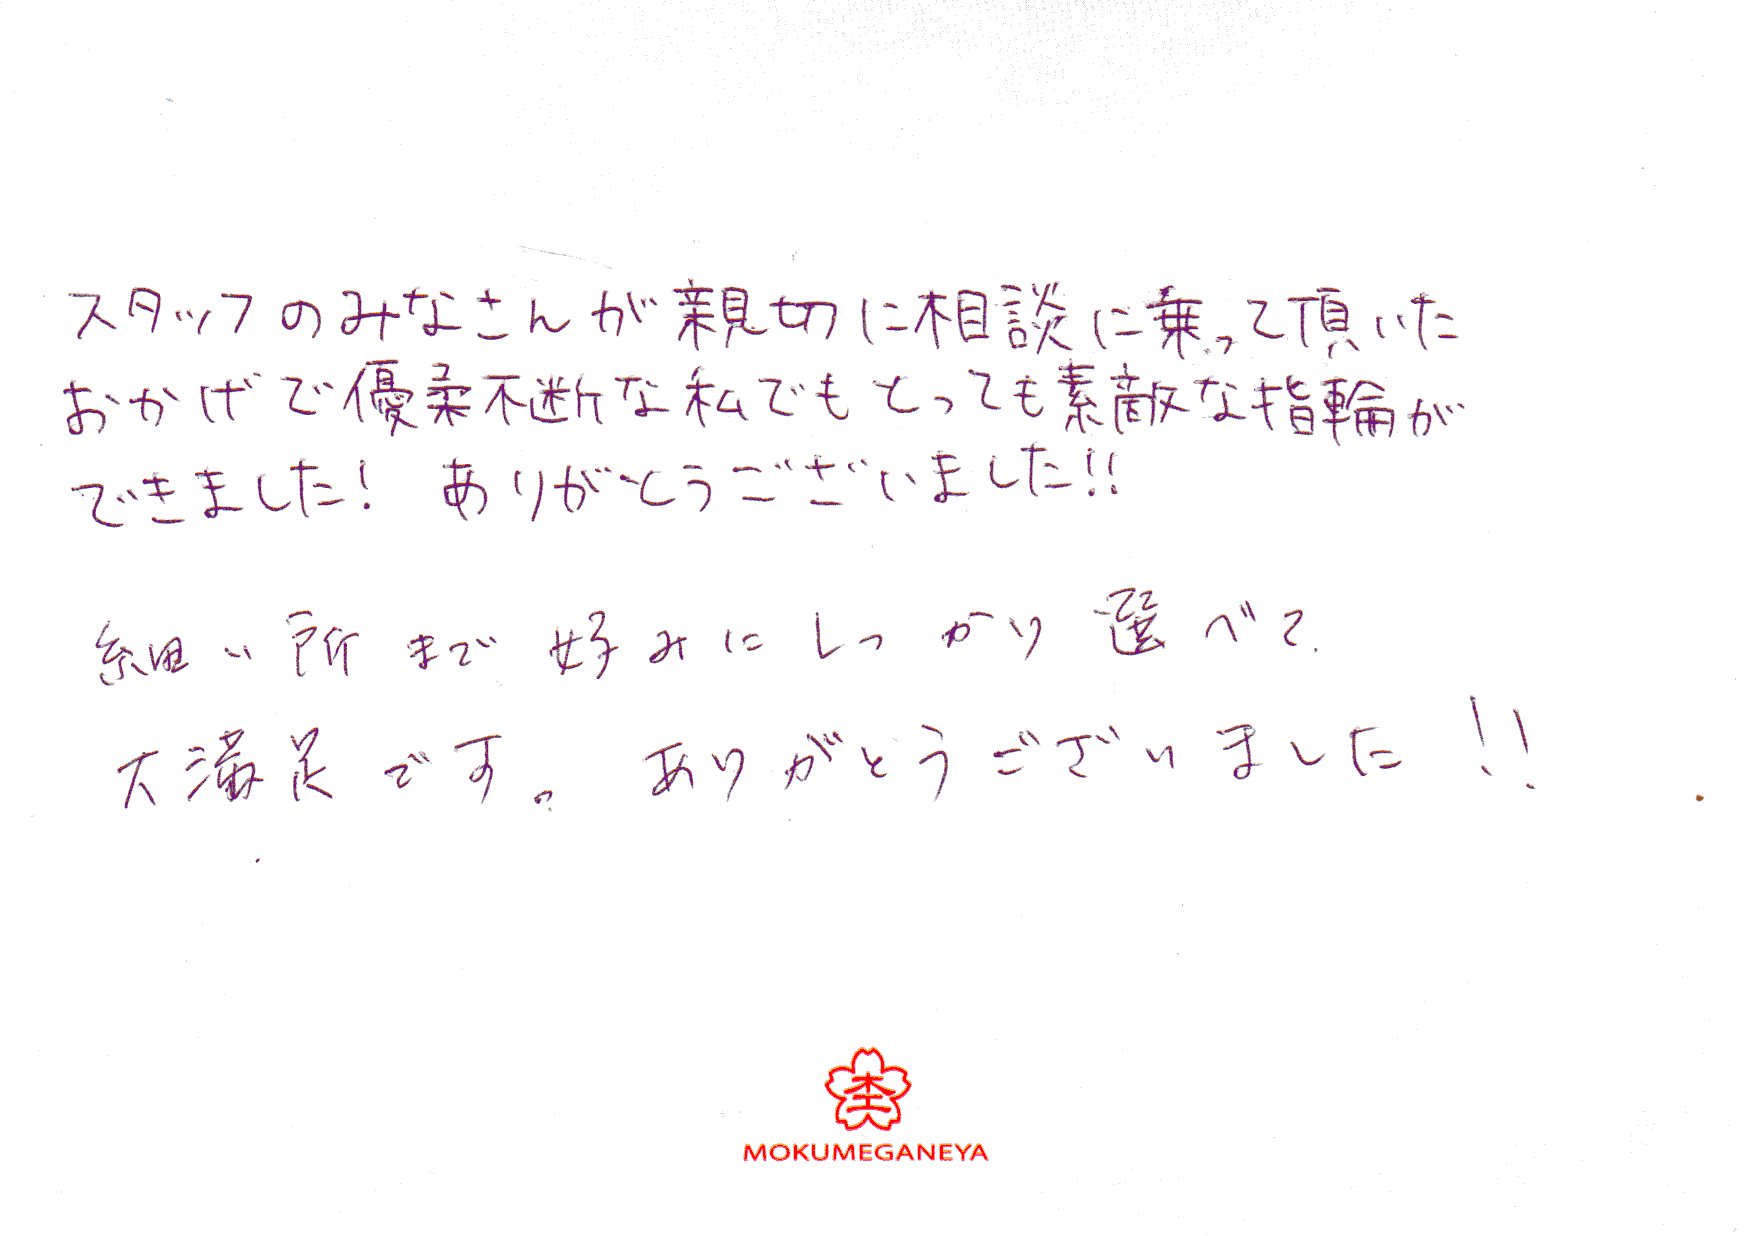 スタッフのみなさんが親切に相談に乗って頂いた
おかげで優柔不断な私でもとっても素敵な指輪が
できました! ありがとうございました!!
細い所まで好みにしっかり選べて.
大満足です。ありがとうございました!!
MOKUMEGANEYA